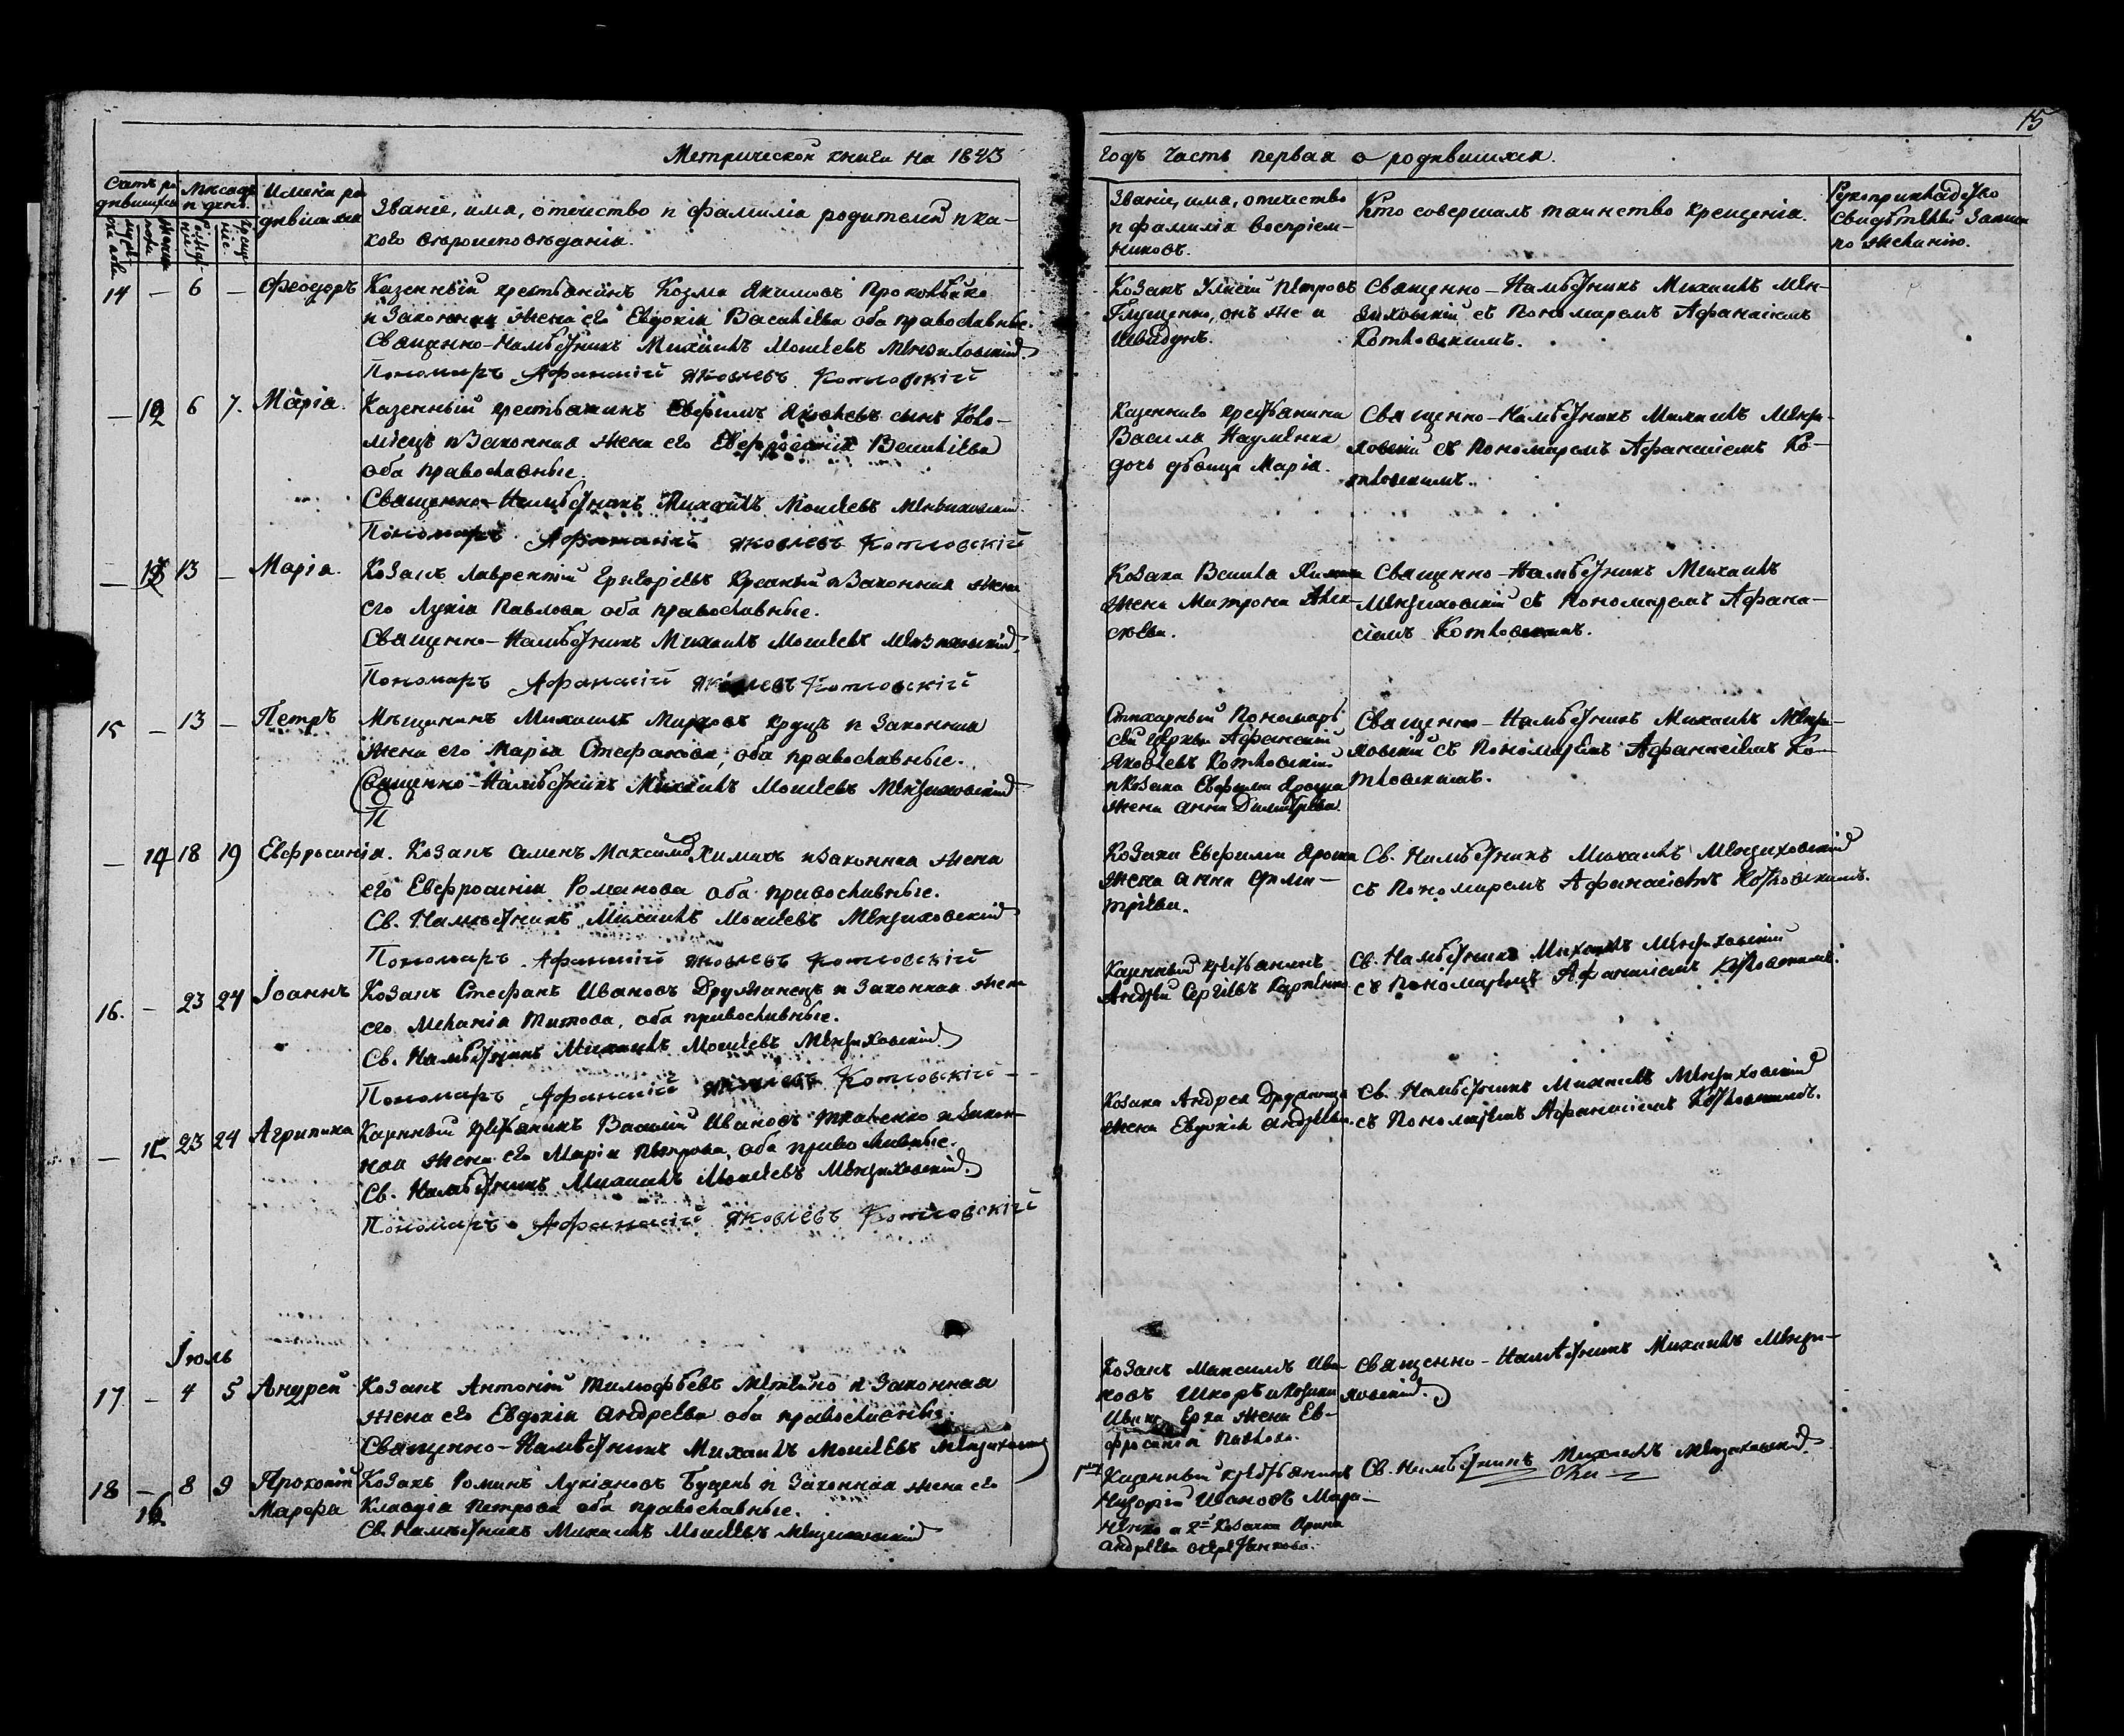 15
Метрической книги на 1843
годъ часть первая о родившихся.
Счетъ ро-
дившихся
Мѣсяцъ
и день.
Имена ро
дившихся
Званіе, имя, отечество и фамилія родителей и ка-
кого вѣроисповѣданія.
Званіе, имя, отечество
и фамилія воспріем-
никовъ.
Кто совершалъ таинство крещенія.
Рукоприкладство
свидѣтелей записи
по желанію.
14 — 6 — Феодоръ
Казенный крестьянинъ Козма Якимовъ
и законная жена его Евдокія Васильева оба православные.
Священно-Намѣстникъ Михаилъ Моисеевъ Мензиховскій
Пономаръ Афанасій Яковлевъ Котловскій
Козакъ Петровъ
Глущенко, онъ же и
Священно-Намѣстникъ Михаилъ Мен-
зиховскій съ Пономаремъ Афанасіемъ
Котловскимъ.
— 12 6 7. Марія.
Казенный крестьянинъ Евфимъ Яковлевъ сынъ Коло-
міецъ и законная жена его Евфросинія Васильева
оба православные.
Священно-Намѣстникъ Михаилъ Моисеевъ Мензиховскій
Пономаръ Афанасій Яковлевъ Котловскій
Казеннаго крестьянина
Василя Науменка
дочь дѣвица Марія.
Священно-Намѣстникъ Михаилъ Мензи-
ховскій съ Пономаремъ Афанасіемъ Ко-
тловскимъ.
— 13 13 — Марія.
Козакъ Лаврентій Григоріевъ и законная жена
его Лукія Павлова оба православные.
Священно-Намѣстникъ Михаилъ Моисеевъ Мензиховскій
Пономаръ Афанасій Яковлевъ Котловскій
Козака
жена Матрона Алек-
сѣева.
Священно-Намѣстникъ Михаилъ
Мензиховскій съ Пономаремъ Афана-
сіемъ Котловскимъ.
15 — 13 — Петръ
Мѣщанинъ Михаилъ и законная
жена его Марія Стефанова, оба православные.
Священно-Намѣстникъ Михаилъ Моисеевъ Мензиховскій
П
Стихарный Пономарь
сей церкви Афанасій
Яковлевъ Котловскій
и козака Евфима Яроша
жена Анна Димитріева.
Священно-Намѣстникъ Михаилъ Мензи-
ховскій съ Пономаремъ Афанасіемъ Ко-
тловскимъ.
— 14 18 19 Евфросинія.
Козакъ и законная жена
его Евфросинія Романова оба православные.
Св. Намѣстникъ Михаилъ Моисеевъ Мензиховскій
Пономаръ Афанасій Яковлевъ Котловскій
Козака Евфима Яроша
жена Анна Дими-
тріева.
Св. Намѣстникъ Михаилъ Мензиховскій
съ Пономаремъ Афанасіемъ Котловскимъ.
16. — 23 24 Іоаннъ
Козакъ Стефанъ Ивановъ Дружинецъ и законная жена
его Меланія Титова, оба православные.
Св. Намѣстникъ Михаилъ Моисеевъ Мензиховскій
Пономаръ Афанасій Яковлевъ Котловскій
Казенный крестьянинъ
Андрей Сергіевъ Карпенко
Св. Намѣстникъ Михаилъ Мензиховскій
съ Пономаремъ Афанасіемъ Котловскимъ.
— 15 23 24 Агрипина
Казенный крестьянинъ Василій Ивановъ Ткаченко и закон-
ная жена его Марія Петрова, оба православные.
Св. Намѣстникъ Михаилъ Моисеевъ Мензиховскій
Пономаръ Афанасій Яковлевъ Котловскій
Козака Андрея Дружинца
жена Евдокія Андреева.
Св. Намѣстникъ Михаилъ Мензиховскій
съ Пономаремъ Афанасіемъ Котловскимъ.
Іюль
17 — 4 5 Андрей
Козакъ Антоній Тимофѣевъ и законная
жена его Евдокія Андреева оба православные.
Священно-Намѣстникъ Михаилъ Моисеевъ Мензиховскій
Козакъ Максимъ Ива-
новъ и козака
жена Ев-
фросинія Павлова.
Священно-Намѣстникъ Михаилъ Мензи-
ховскій.
18 — 8 9 Прокопій
16. Марфа
Козакъ Романъ Лукіановъ и законная жена его
Клавдія Петрова оба православные.
Св. Намѣстникъ Михаилъ Моисеевъ Мензиховскій
Казенный крестьянинъ
Ивановъ
и 2й козачка Ирина
Андреева
Св. Намѣстникъ Михаилъ Мензиховскій